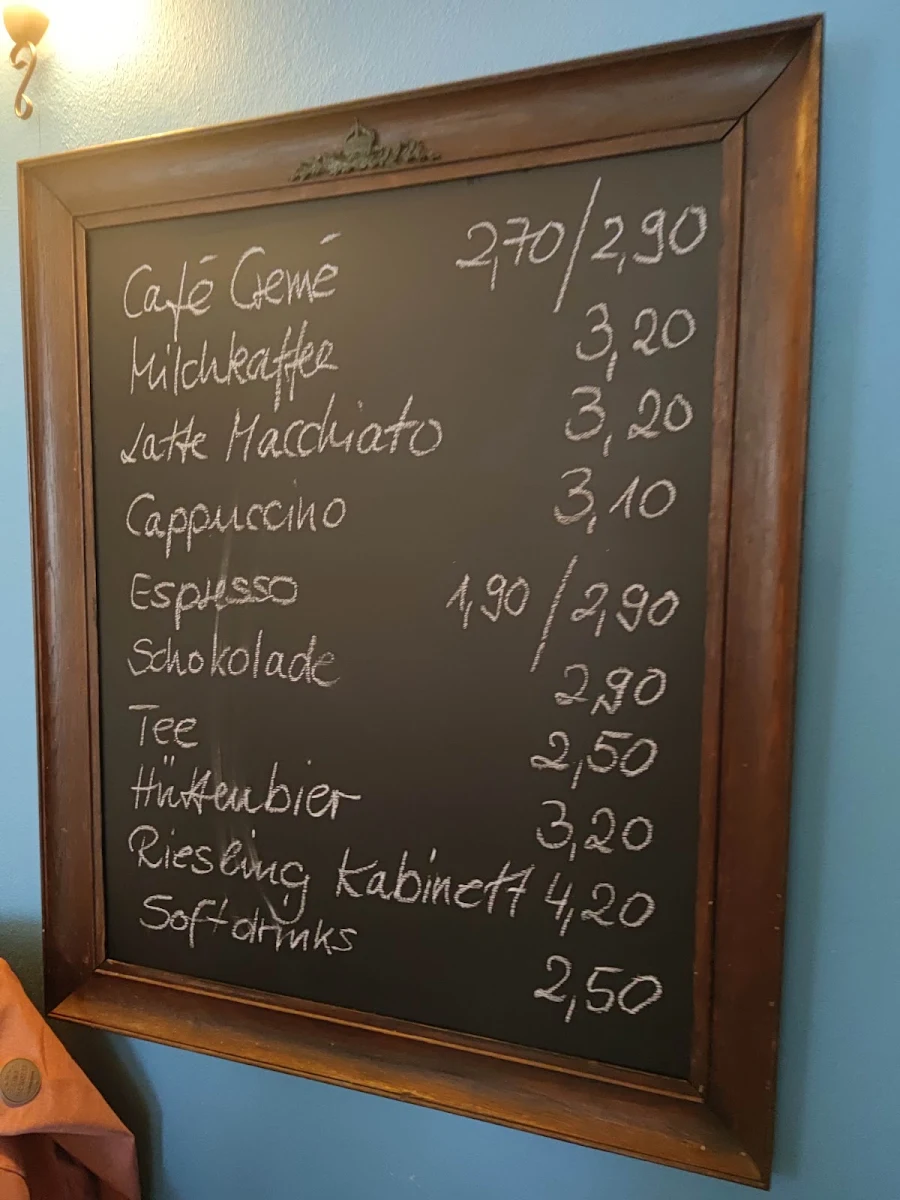 Café Cremé 2,70/2,90
Milchkaffee 3,20
Latte Macchiato 3,20
Cappuccino 3,10
Espresso 1,90/2,90
Schokolade 2,90
Tee 2,50
Hüttenbier 3,20
Riesling Kabinett 4,20
Softdrinks 2,50